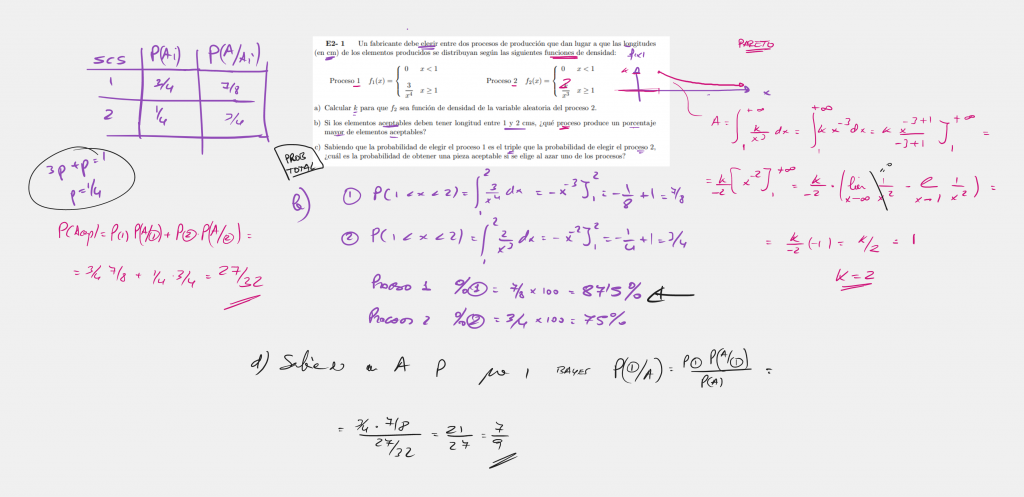 E2- 1 Un fabricante debe elegir entre dos procesos de producción que dan lugar a que las longitudes
(en cm) de los elementos producidos se distribuyan según las siguientes funciones de densidad:
Proceso 1 f₁(x) = { 0 x < 1
3/x⁴ x ≥ 1
Proceso 2 f₂(x) = { 0 x < 1
2/x³ x ≥ 1
a) Calcular k para que f₂ sea función de densidad de la variable aleatoria del proceso 2.
b) Si los elementos aceptables deben tener longitud entre 1 y 2 cms, ¿qué proceso produce un porcentaje
mayor de elementos aceptables?
c) Sabiendo que la probabilidad de elegir el proceso 1 es el triple que la probabilidad de elegir el proceso 2,
¿cuál es la probabilidad de obtener una pieza aceptable si se elige al azar uno de los procesos?
PROB
TOTAL
SCS P(Ai) P(A/Ai)
1 3/4 7/8
2 1/4 3/4
3p + p = 1
p = 1/4
P(Acep) = P(1) P(A/①) + P② P(A/②) =
= 3/4 7/8 + 1/4 · 3/4 = 27/32
PARETO
f(x)
k
x
A = ∫₁^+∞ k/x³ dx = ∫₁^+∞ k x⁻³ dx = k x^(-3+1)/(-3+1) ]₁^+∞ =
= k/-2 [x⁻²]₁^+∞ = k/-2 · (lim x→∞ 1/x² - l x→1 1/x²) =
0
= k/-2 (-1) = k/2 = 1
K = 2
b)
① P(1 < x < 2) = ∫₁² 3/x⁴ dx = -x⁻³]₁² = -1/8 + 1 = 7/8
② P(1 < x < 2) = ∫₁² 2/x³ dx = -x⁻²]₁² = -1/4 + 1 = 3/4
Proceso 1 %① = 7/8 × 100 = 87'5%
Proceso 2 %② = 3/4 × 100 = 75%
d) A P 1 BAYES P(①/A) = P① P(A/①)/P(A) =
= (3/4 · 7/8)/(27/32) = 21/27 = 7/9